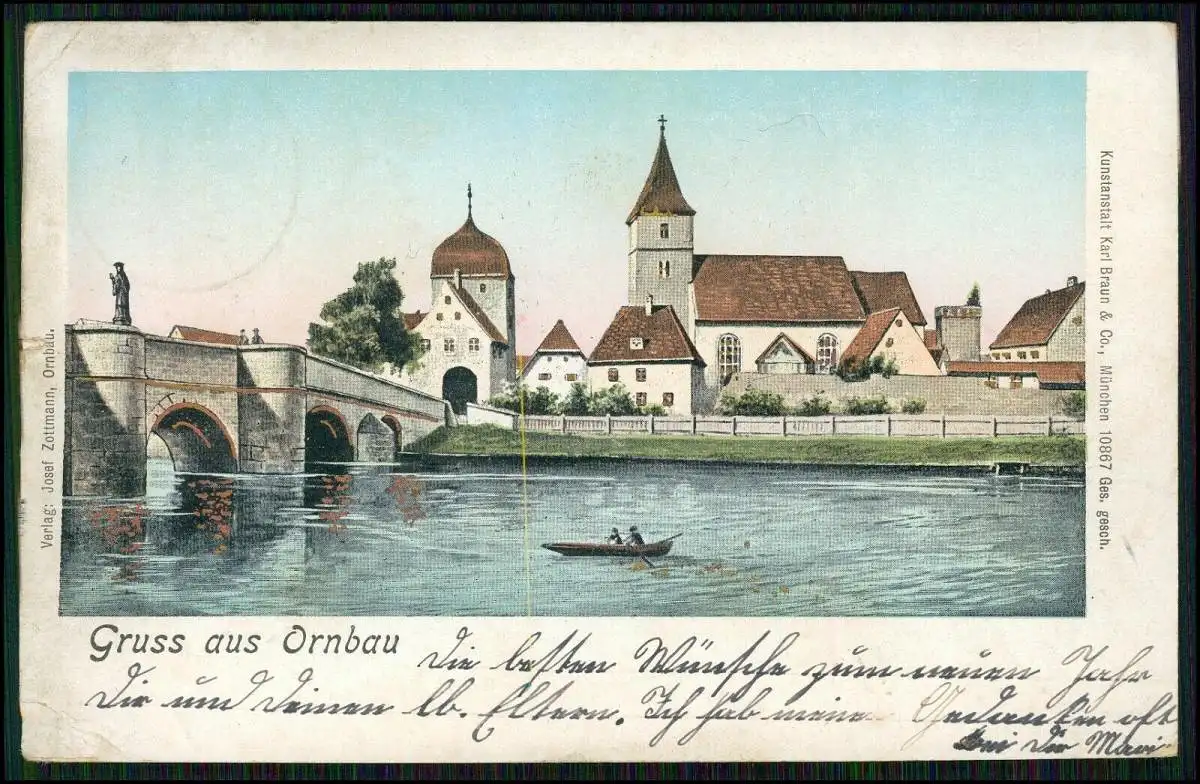 Verlag: Josef Zottmann, Ornbau.
Kunstanstalt Karl Braun & Co., München 10867 Ges. gesch.
Gruss aus Ornbau
Die besten Wünsche zum neuen Jahr
Dir und Deinen lb. Eltern. Ich hab meine Gedanken oft
bei Dir Mari